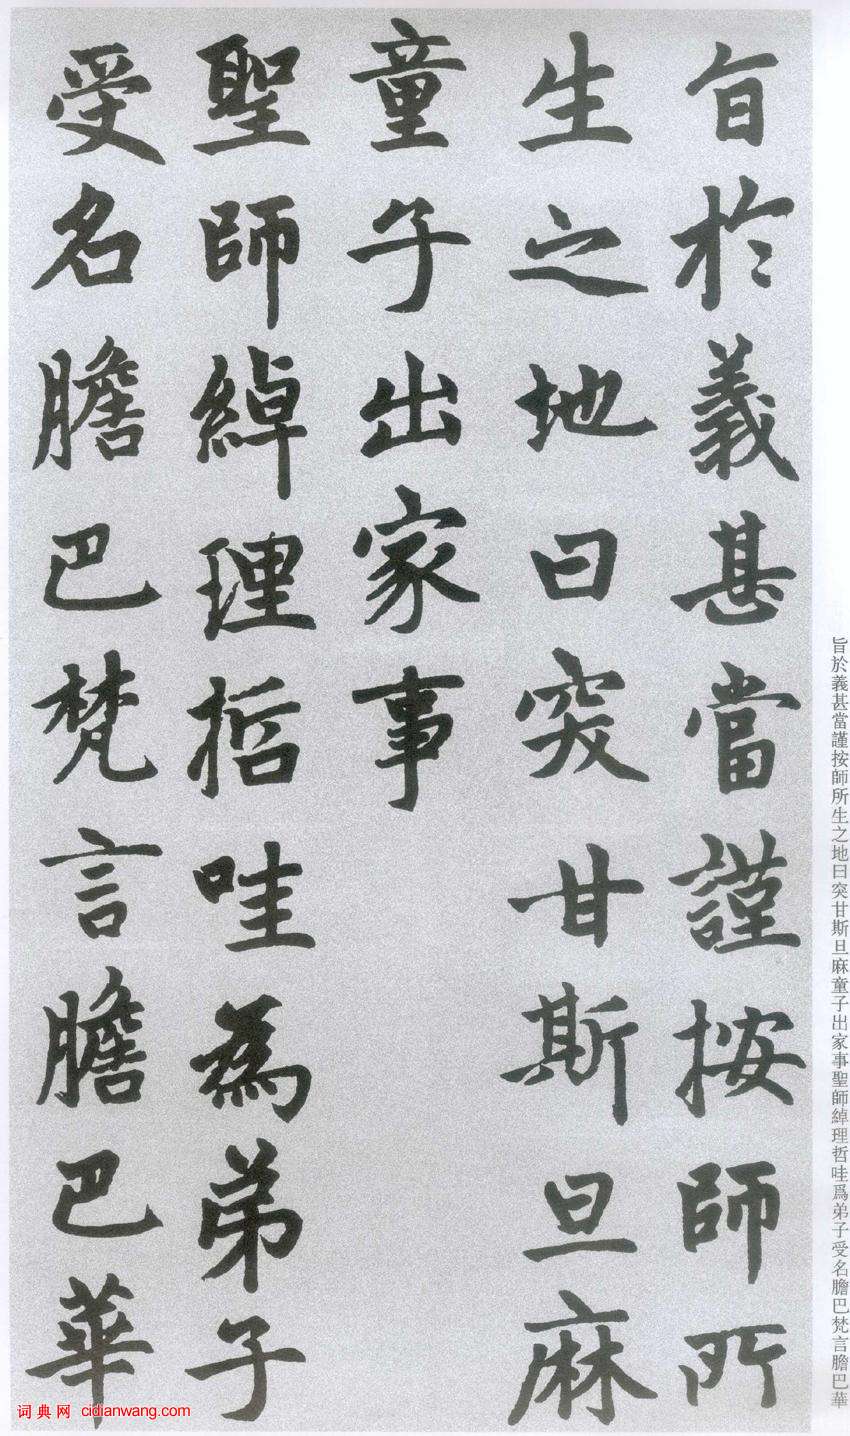 旨於義甚當謹按師所
生之地曰突甘斯旦麻
童子出家事
聖師綽理哲哇為弟子
受名膽巴梵言膽巴華
旨於義甚當謹按師所生之地曰突甘斯旦麻童子出家事聖師綽理哲哇爲弟子受名膽巴梵言膽巴華
词典网 cidianwang.com